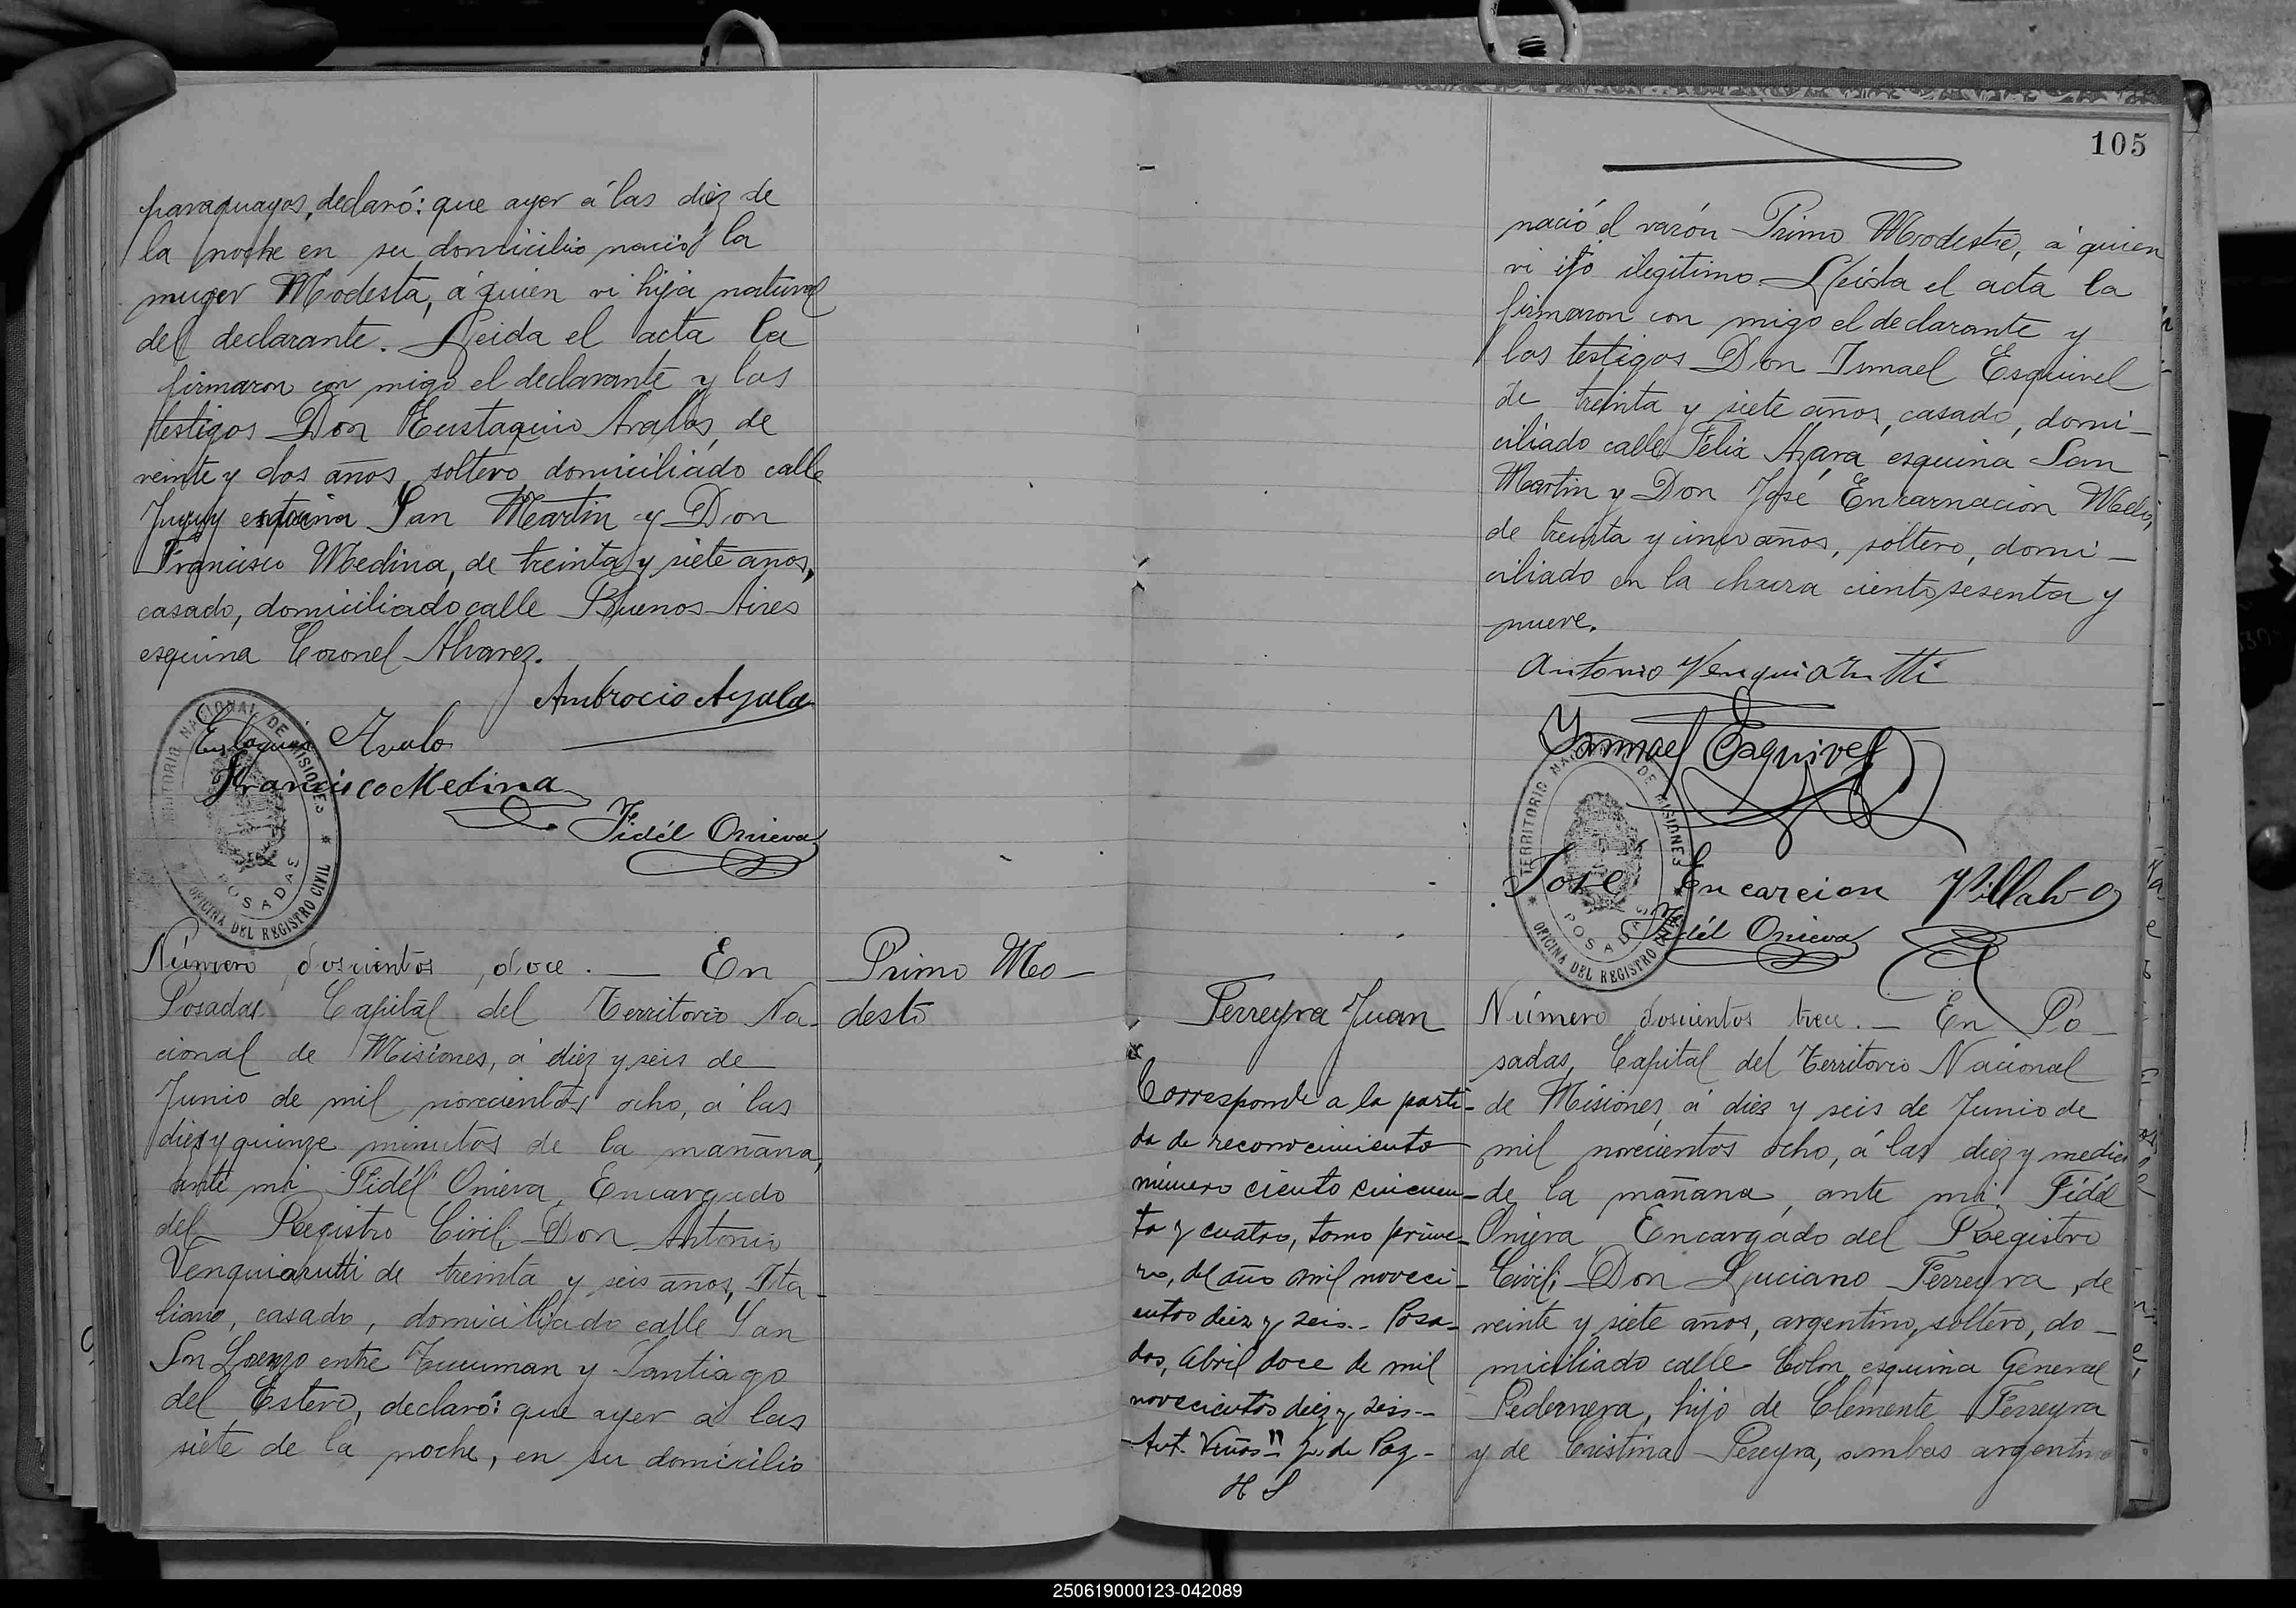 paraguayos, declaró: que ayer á las diez de
la noche en su domicilio nació la
muger Modesta, á quien vi hija natural
del declarante. Leida el acta la
firmaron con migo el declarante y los
testigos Don Eustaquio Avalos, de
veinte y dos años, soltero domiciliado calle
Jujuy esquina San Martin y Don
Francisco Medina, de treinta y siete años,
casado, domiciliado calle Buenos Aires
esquina Coronel Alvarez.
Ambrocio Ayala
Eustaquio Avalo
Francisco Medina
Fidél Onieva
TERRITORIO NACIONAL DE MISIONES
POSADAS
OFICINA DEL REGISTRO CIVIL
Número doscientos doce. — En
Posadas Capital del Territorio Na-
cional de Misiones, á diez y seis de
Junio de mil novecientos ocho, á las
diez y quinze minutos de la mañana,
ante mi Fidél Onieva, Encargado
del Registro Civil, Don Antonio
Venquiarutti de treinta y seis años, Ita-
liano, casado, domiciliado calle San
Lorenzo entre Tucuman y Santiago
del Estero, declaró: que ayer á las
siete de la noche, en su domicilio
Primo Mo-
desto
105
nació el varón Primo Modesto, á quien
vi ijo ilegitimo. Leida el acta la
firmaron con migo el declarante y
los testigos Don Ismael Esquivel
de treinta y siete años, casado, domi-
ciliado calle Félix Azara esquina San
Martin y Don José Encarnación
de treinta y cinco años, soltero, domi-
ciliado en la chacra ciento sesenta y
nueve.
Antonio Venquiarutti
Ysmael Esquivel
José Encarcion Villalva
Fidél Onieva
TERRITORIO NACIONAL DE MISIONES
POSADAS
OFICINA DEL REGISTRO CIVIL
Ferreyra Juan
Corresponde a la parti-
da de reconocimiento
número ciento cincuen-
ta y cuatro, tomo prime-
ro, del año mil noveci-
entos diez y seis.- Posa-
das, Abril doce de mil
novecientos diez y seis.-
Ant. Viños" J. de Paz-
H S
Número doscientos trece. — En Po-
sadas, Capital del Territorio Nacional
de Misiones, á diez y seis de Junio de
mil novecientos ocho, á las diez y media
de la mañana, ante mi Fidél
Onieva Encargado del Registro
Civil, Don Luciano Ferreyra, de
veinte y siete años, argentino, soltero, do-
miciliado calle Colon esquina General
Pedernera, hijo de Clemente Ferreyra
y de Cristina Pereyra, ambos argentino
250619000123-042089